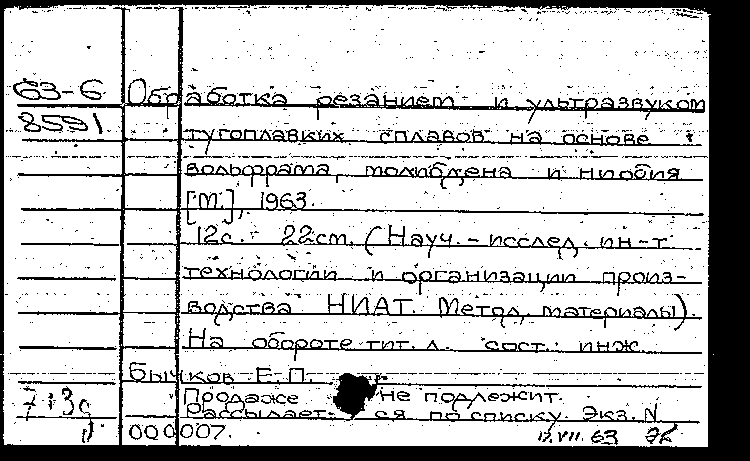 63-6 Обработка резанием и ультразвуком
8591 тугоплавких сплавов на основе
вольфрама, молибдена и ниобия
[М.], 1963.
12с. 22см. (Науч.-исслед. ин-т
технологии и организации произ-
водства НИАТ. Метод. материалы).
На обороте тит. л. сост.: инж.
Бычков Е.П.
Продаже не подлежит.
Рассылает- ся по списку. Экз. N
000007. 17.VII.63